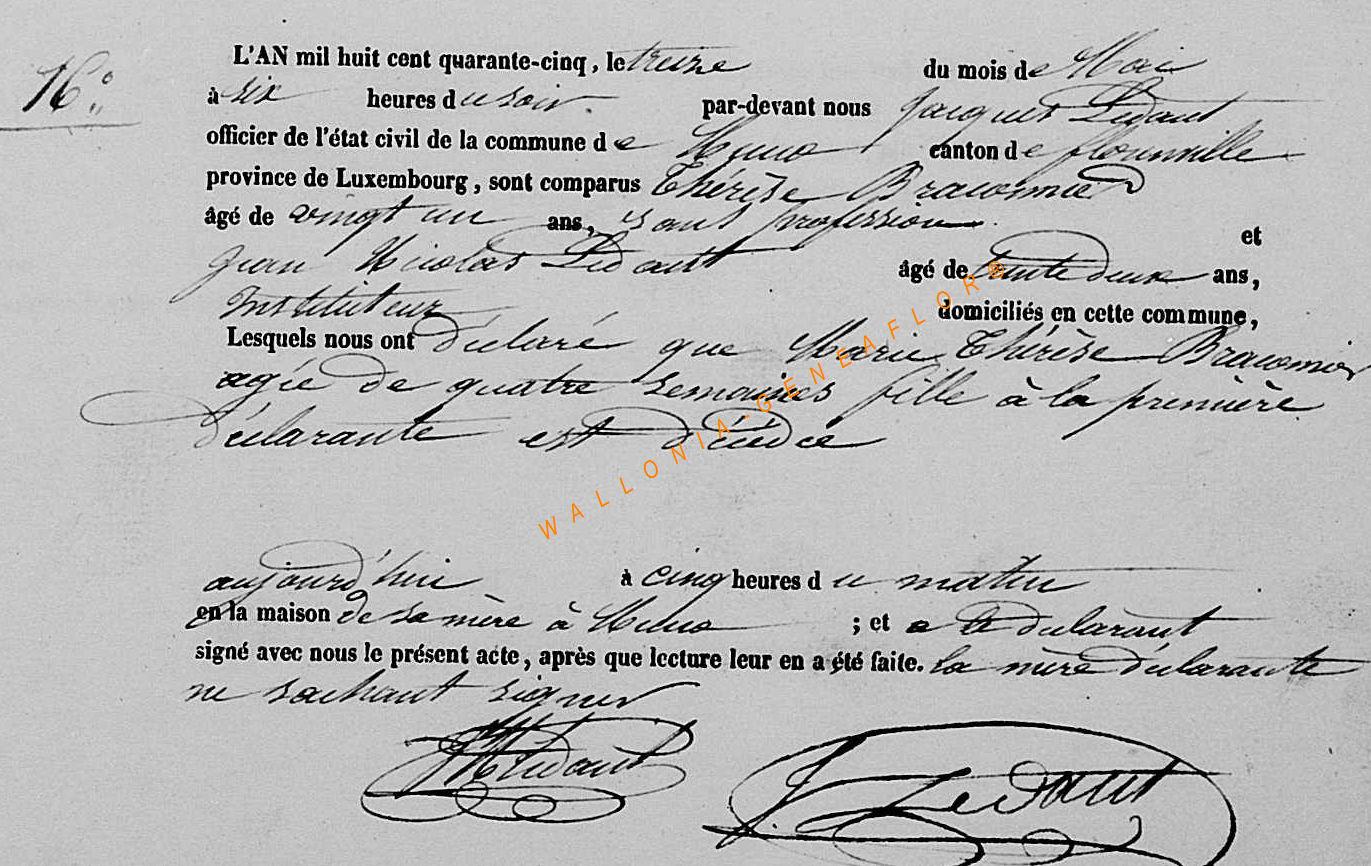 16°
L'AN mil huit cent quarante-cinq, le treize du mois de Mai
à six heures du soir. par-devant nous Jacques Ledant
officier de l'état civil de la commune de Muno canton de florenville
province de Luxembourg, sont comparus Thérèse
âgé de vingt un ans, sans profession et
Jean Nicolas Ledant âgé de trente deux ans,
Instituteur domiciliés en cette commune,
Lesquels nous ont déclaré que Marie Thérèse
agée de quatre semaines fille à la première
déclarante est décédée
aujourd'hui à cinq heures du matin
en la maison de sa mère à Muno ; et a le déclarant
signé avec nous le présent acte, après que lecture leur en a été faite. la mère déclarante
ne sachant signer
JNLedant J Ledant
WALLONIA-GENEAFLOR®